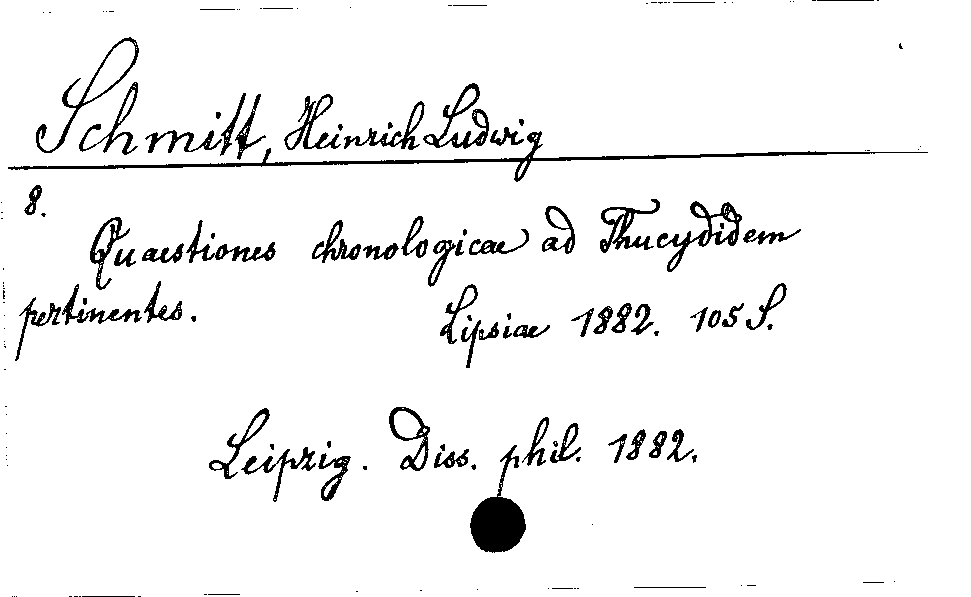 Schmitt, Heinrich Ludwig
8.
Quaestiones chronologicae ad Thucydidem
pertinentes. Lipsiae 1882. 105 S.
Leipzig. Diss. phil. 1882.